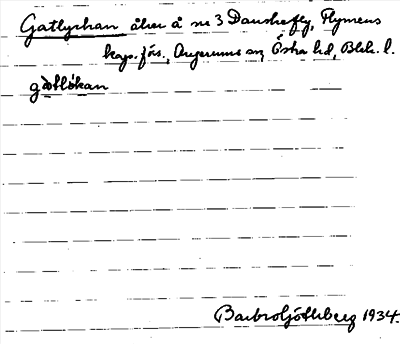 Gatlyckan åker å nr 3 Danskefly, Flymens
kap. förs., Augerums sn, Östra hd, Blek. l.
gatlökan
Barbro Ljötteberg 1934.